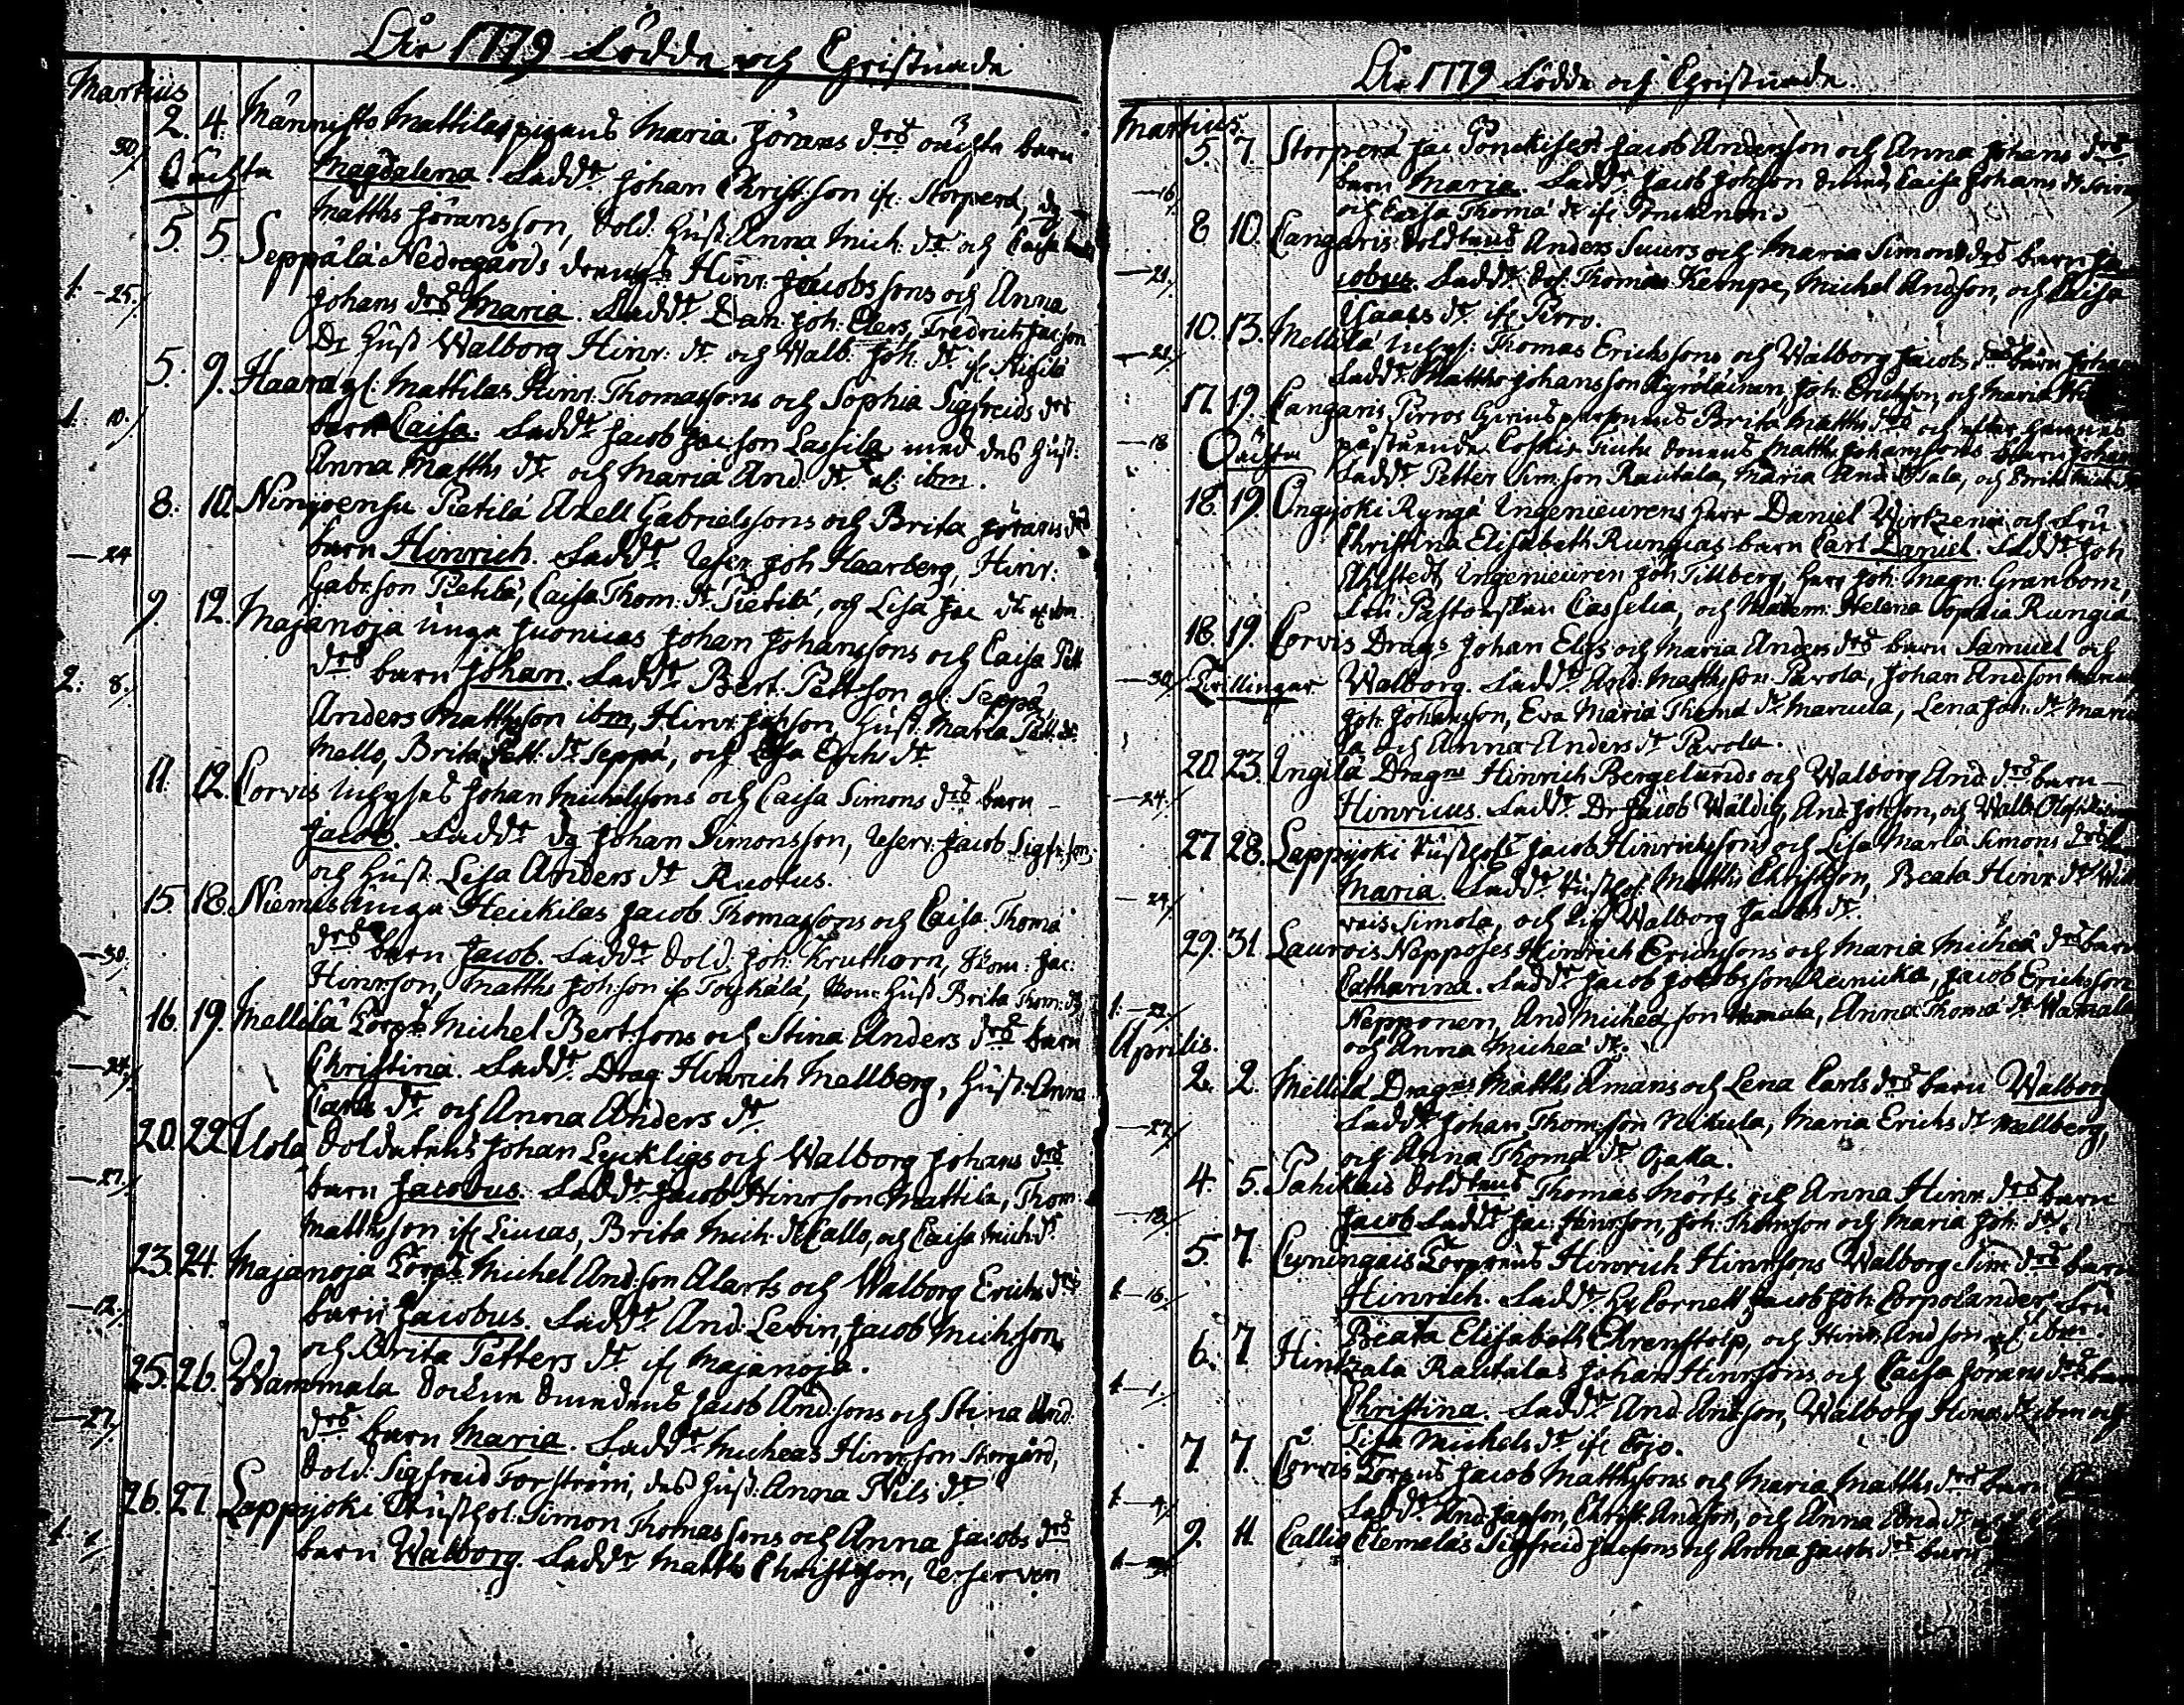 År 1779 Födde och Christnade
Martius
2. 4. Männistö Mattilas pigans Maria Jörans drs oächta barn
30. Oächta Magdalena. Fadd:r Johan Christ:son if: Storperä, dg
Matths Jöransson, Sold: Hust: Anna Mich: dr och Caisa
5. 5. Seppälä Nedregårds drengs Hinr: Jacobssons och Anna
1. -25. Johans drs Maria. Fadd:r Dan: Joh: Elers, Fredrich Jac:son
Dr Hust Walborg Hinr: dr och Walb: Joh: dr if:
5. 9. Haara gl: Mattilas Hinr: Thomassons och Sophia Sigfreids drs
1. 10. barn Caisa. Fadd:r Jacob Jac:son Lassila med des Hust:
Anna Matths dr och Maria And: dr if: ibm.
8. 10. Ninijoensu Pietilä Axell Gabrielssons och Brita Jörans drs
—24 barn Hinrich. Fadd:r Joh Haarberg, Hinr:
Gabr:son Pietilä, Caisa Thom: dr Pietilä, och Lisa Jac dr if: ibm.
9. 12. Majanoja unga Juonicas Johan Johanssons och Caisa Pett
drs barn Johan. Fadd:r Bert: Pettson gl: Seppä,
2: 8. Anders Matthsson ibm, Hinr: Joh:son, Hust: Maria Pett: dr
Mello, Brita Pett: dr Seppä, och Lisa Erichs dr
11. 12. Corvis Johan Michelssons och Caisa Simons drs barn
Jacob. Fadd:r dg Johan Simonsson, Reserv: Jacob Sigfr:son,
och Hust: Lisa Anders dr Ruotus.
15. 18. Niemis unga Heickilas Jacob Thomassons och Caisa Thomæ
drs barn Jacob. Fadd:r Sold: Joh: Kruthorn, Thom: Jac:
—30. Hinrsson, Matths Joh:son if: Torckälä, Hust Brita Thom: dr
16. 19. Mellilä Torp:s Michel Bertsons och Stina Anders drs barn
—24. Christina. Fadd:r Drag: Hinrich Mellberg, Hust: Anna
Carls dr och Anna Anders dr
20. 22. Ulola Soldatens Johan Lyckligs och Walborg Johans drs
—27. barn Jacobus. Fadd:r Jacob Hinrson Mattila, Thom
Matthsson if: Liucas, Brita Mich: dr Callo, och Caisa Mich: dr
23. 24. Majanoja Torp:s Michel And:son Alarts och Walborg Erichs drs
—12. barn Jacobus. Fadd:r And: Levin, Jacob Michsson
och Brita Petters dr if: Majanoja.
25. 26. Wammala Jacob And:sons och Stina And:
—27. drs barn Maria. Fadd:r Micheas Hinrson Storgård,
Sold: Sigfreid Forström, des Hust: Anna Nils dr
26. 27. Lappijoki Rusthol: Simon Thomassons och Anna Jacobs drs
1. barn Walborg. Fadd:r Matths Christsson, Reserven
År 1779 Födde och Christnade.
Martius.
5. 7. Storperä Jac Jacob Andersson och Anna Johans drs
—16. barn Maria. Fadd:r Jacob Johsson Caisa Johans dr
och Caisa Thomæ dr if:
8 10. Cangaris Soldtens Anders Suurs och Maria Simons drs barn Ja-
—21. cobus. Fadd:r Sol: Thomas Kempe, Michel Andson, och Caisa
Isaacs dr if: Pirro.
10. 13. Mellilä Thomas Erichssons och Walborg Jacobs drs barn Johan
—21. Fadd:r Matths Johansson Kyröläinen, Joh: Erichson, och Maria
17. 19. Cangaris Pirros Brita Matths drs och efter hennes
—18 Oächta påstående Matths Johanssons barn Johan
Fadd:r Petter Sim:son Rautala, Maria And: dr, och Brita
18. 19. Ongijoki Ryngä Ingenieurens Herr Daniel Wirtzenii och Fru
Christina Elisabeth Rungias barn Carl Daniel. Fadd:r Joh
Ahlstedt, Ingenieuren Joh: Tillberg, Herr Joh: Magn: Granbom,
Fru Pastorskan Casselia, och Madem: Helena Sophia Rungia.
18. 19. Corvis Drags Johan Elgs och Maria Anders drs barn Samuel och
—30. Tvillingar Walborg. Fadd:r And: Matthsson Pavola, Johan And:son
Joh: Johansson, Eva Maria Thomæ dr Marcula, Lena Joh: dr Marcu
la och Anna Anders dr Pavola.
20. 23. Ingilä Dragns Hinrich Bergelunds och Walborg And: drs barn
—24. Hinricus. Fadd:r Dr Jacob Wäldig, And: Johsson, och Walb: Olofs
27 28. Lappijoki Rusthol:s Jacob Hinrichssons och Lisa Maria Simons drs
—24. Maria. Fadd:r Rusthol: Matths Christsson, Beata Hinr: dr
Simola, och Walborg Jacobs dr.
29. 31. Laurois Nepposes Hinrich Erichssons och Maria Micheæ drs barn
1. —22. Catharina. Fadd:r Jacob Jacobsson Reinicka, Jacob Erichsson
Nepponen, And Micheæ son Wamala, Anna Thomæ dr Wamala
och Anna Micheæ dr.
Aprilis.
2. 2. Mellilä Dragns Matths Amans och Lena Carls drs barn Walborg
—27. Fadd:r Johan Thomsson Nikula, Maria Erichs dr Mellberg,
och Anna Thomæ dr Ojala.
4. 5. Pahikais Soldtens Thomas Mörts och Anna Hinr: drs barn
—18. Jacob Fadd:r Jac: Hinrsson, Joh: Thomson och Maria Joh: dr.
5. 7. Cuningais Torparens Hinrich Hinrssons Walborg Sim: drs barn
1.—16. Hinrich. Fadd:r Hr Cornett Jacob Joh: Corpolander, Fru
Beata Elisabeth Ehrenstolp, och Hinr: Andson if: ibm.
6. 7 Hintzala Rautalas Johan Hinrsons och Caisa Jörans drs barn
1.—1. Christina. Fadd:r And: Andsson, Walborg Hinr: dr ibm och
Lisa Michels dr if: Cojo.
7. 7. Corvis Torpens Jacob Matthssons och Maria Matths drs barn
1.—4. Fadd:r And: Jacson, Christ: Andson, och Anna And: dr
9. 11. Callio Clemelas Sigfreid Jacsons och Anna Jacobs drs barn